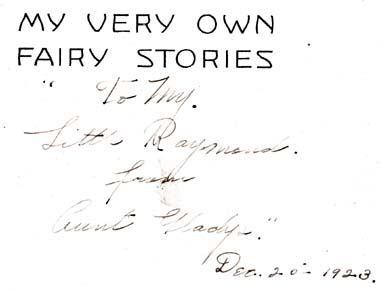 MY VERY OWN
FAIRY STORIES
"To My.
Little Raymond.
from
Aunt Gladys."
Dec. 20 - 1923.